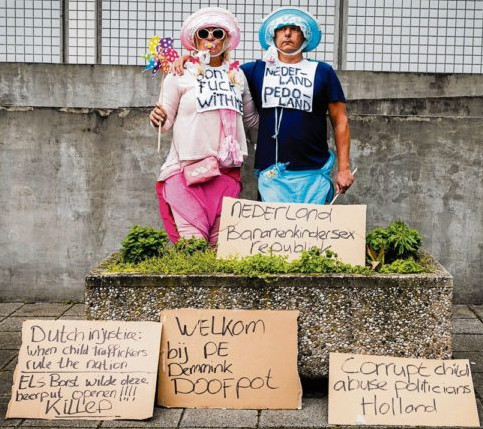 DON'T
FUCK
WITH ME
NEDER-
LAND
PEDO-
LAND
NEDERLAND
Bananenkindersex
republiek
Dutch injustice:
when child traffickers
rule the nation
ELS Borst wilde deze
beerput openen !!!!
Killed
WELKOM
bij DE
Demmink
DOOFPOT
Corrupt child
abuse politicians
Holland